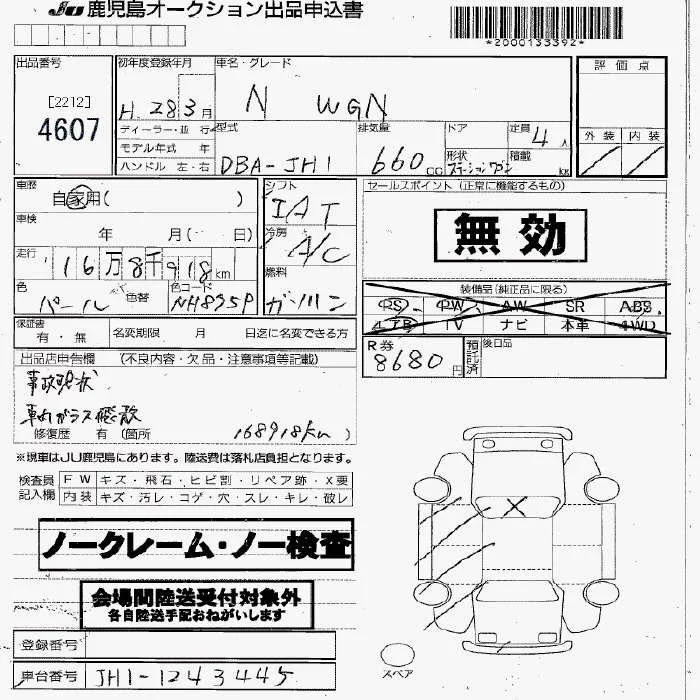 JU 鹿児島オークション出品申込書
*2000133392*
出品番号
[2212]
4607
初年度登録年月
H. 28 3 月
車名・グレード
N WGN
評価点
外装 内装
ディーラー・並 行
モデル年式 年
ハンドル 左・右
型式
DBA-JH1
排気量
660 cc
ドア
定員
4 人
形状
ステーションワゴン
積載
kg
車歴
自家用( )
車検
年 月( 日)
走行
16万8千918km
色
パール
色替
色コード
NH895P
シフト
IAT
冷房
A/C
燃料
ガソリン
セールスポイント (正常に機能するもの)
無効
装備品(純正品に限る)
PS PW AW SR ABS
エアB TV ナビ 本革 4WD
保証書
有・無
名変期限 月 日迄に名変できる方
R券
8680円
預託済
後日品
出品店申告欄 (不良内容・欠品・注意事項等記載)
事故現状
車内ガラス飛散
修復歴 有 (箇所 168918km )
※現車はJU鹿児島にあります。陸送費は落札店負担となります。
検査員
記入欄
FW キズ・飛石・ヒビ割・リペア跡・X要
内装 キズ・汚レ・コゲ・穴・スレ・キレ・破レ
ノークレーム・ノー検査
会場間陸送受付対象外
各自陸送手配おねがいします
登録番号
車台番号
JH1-1243445
スペア